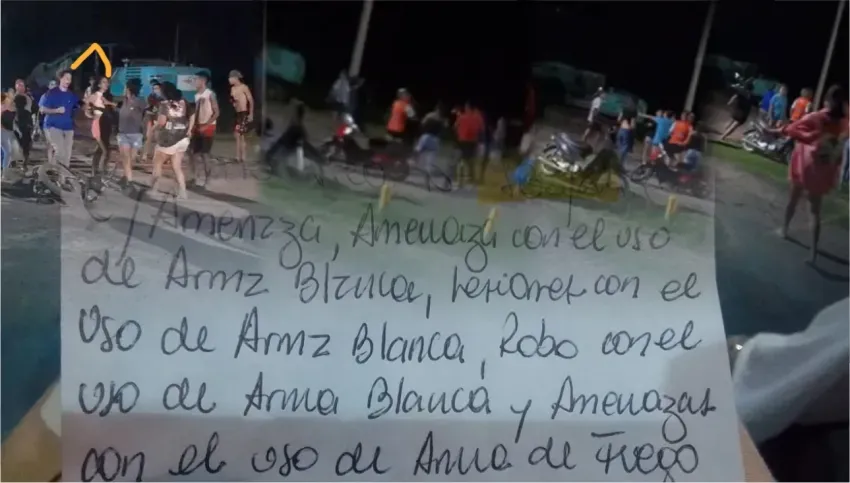 y Amenaza, Amenaza con el uso
de Arma Blanca, Lesiones con el
uso de Arma Blanca, Robo con el
uso de Arma Blanca y Amenazas
con el uso de Arma de Fuego